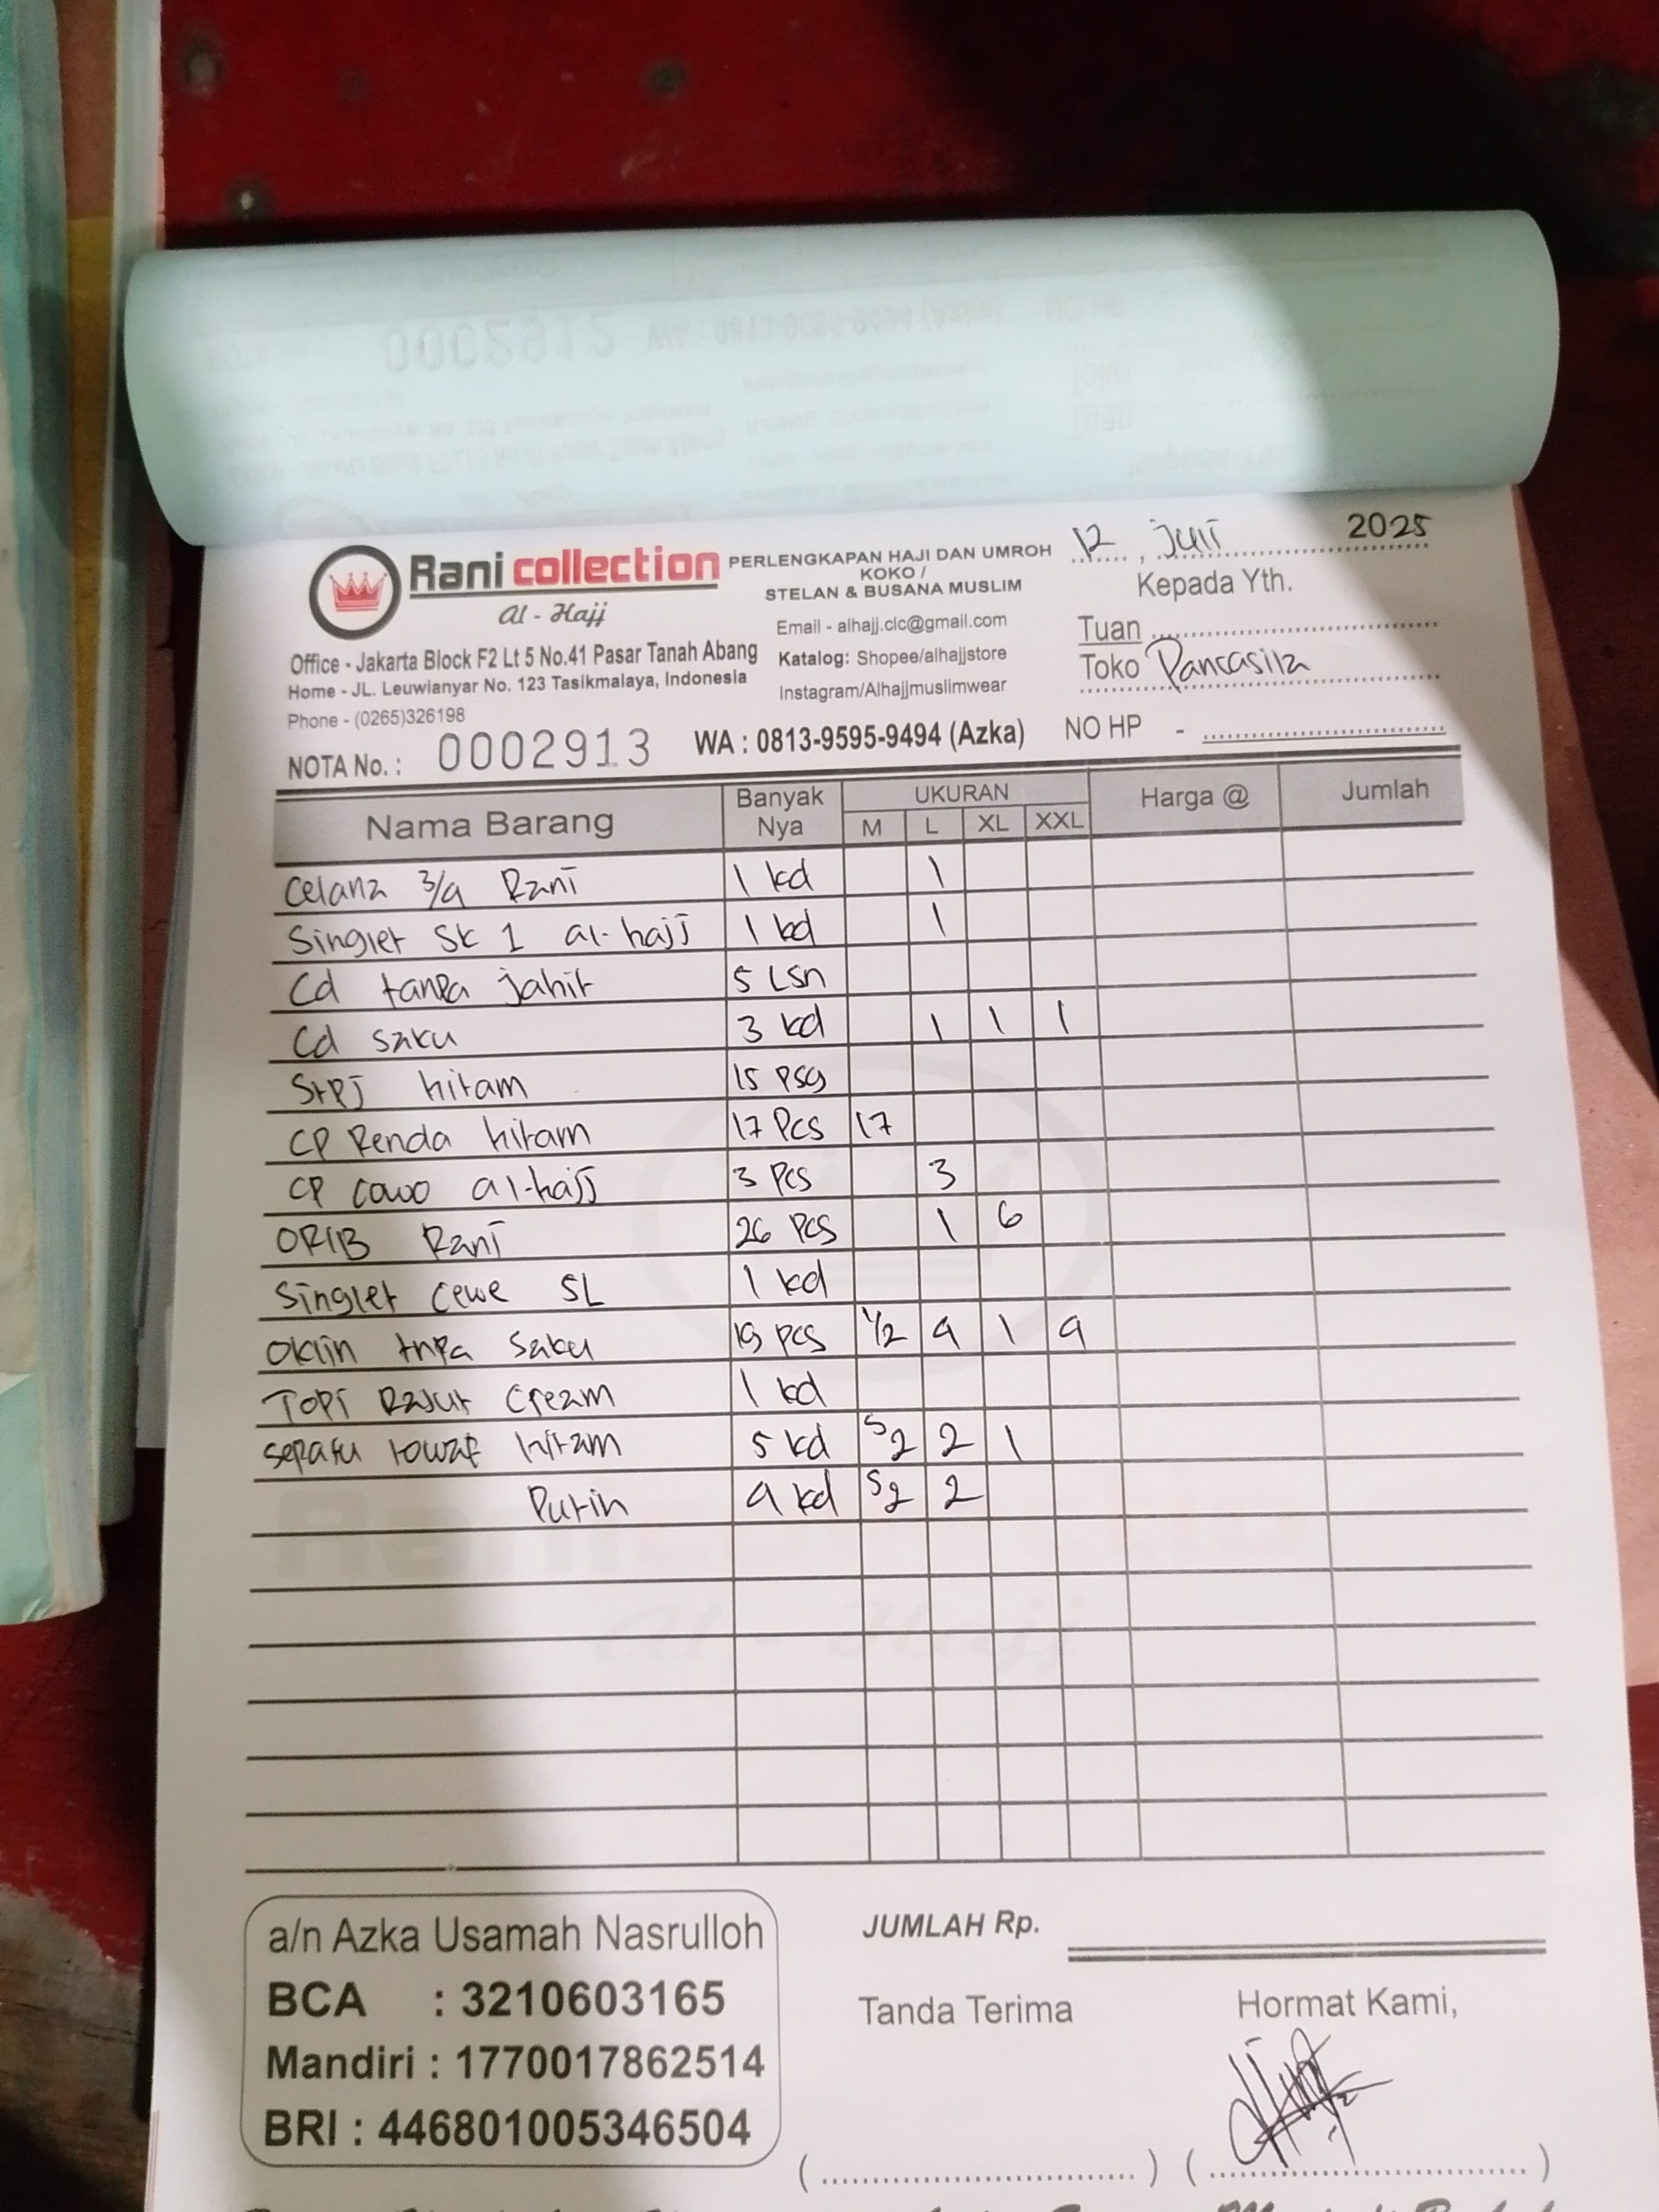 12, Juli 2025
Rani collection
Al - Hajj
PERLENGKAPAN HAJI DAN UMROH
KOKO /
STELAN & BUSANA MUSLIM
Kepada Yth.
Email - alhajj.clc@gmail.com
Tuan
Office - Jakarta Block F2 Lt 5 No.41 Pasar Tanah Abang
Katalog: Shopee/alhajjstore
Toko Pancasila
Home - JL. Leuwianyar No. 123 Tasikmalaya, Indonesia
Instagram/Alhajjmuslimwear
Phone - (0265)326198
NOTA No. : 0002913 WA : 0813-9595-9494 (Azka) NO HP -
Nama Barang Banyak Nya UKURAN M L XL XXL Harga @ Jumlah
Celana 3/4 Rani 1 kd 1
Singlet SK 1 al-hajj 1 kd 1
Cd tanpa jahit 5 Lsn
Cd saku 3 kd 1 1 1
StPJ hitam 15 psg
CP Renda hitam 17 Pcs 17
CP cowo al-hajj 3 Pcs 3
Rani 26 Pcs 1 6
Singlet cewe SL 1 kd
tnpa saku 19 pcs 1/2 4 1 4
Topi Rajut Cream 1 kd
sepatu towaf hitam 5 kd S2 2 1
Putih 4 kd S2 2
a/n Azka Usamah Nasrulloh
JUMLAH Rp.
BCA : 3210603165
Tanda Terima Hormat Kami,
Mandiri : 1770017862514
BRI : 446801005346504